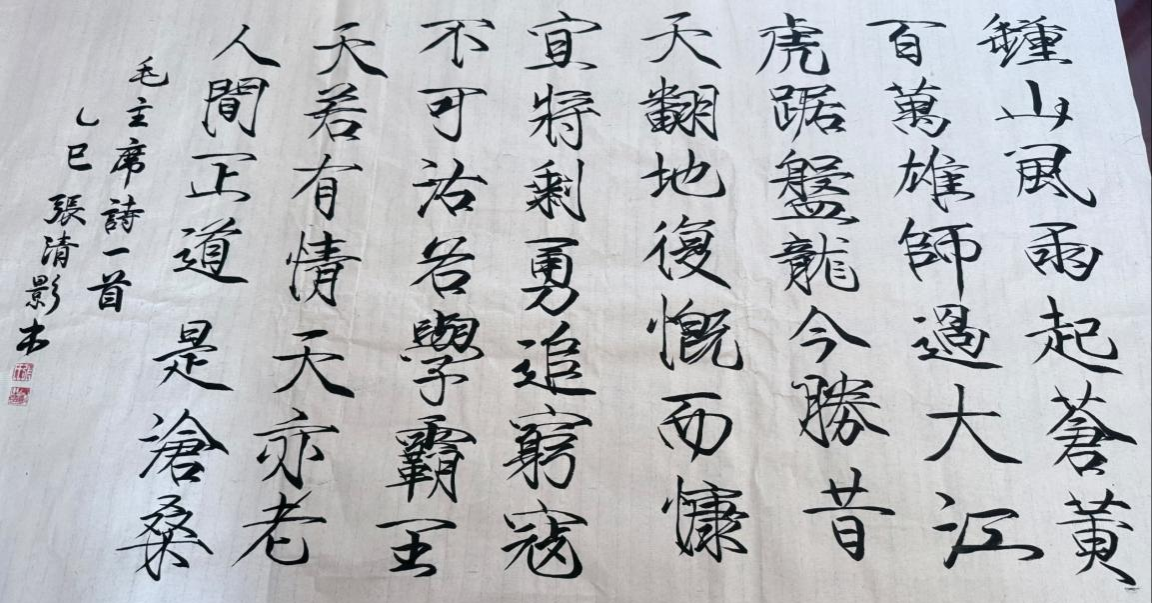 鍾山風雨起蒼黄
百萬雄師過大江
虎踞盤龍今勝昔
天翻地復慨而慷
宜將剩勇追窮寇
不可沽名學霸王
天若有情天亦老
人間正道是滄桑
毛主席詩一首
乙巳 張清影